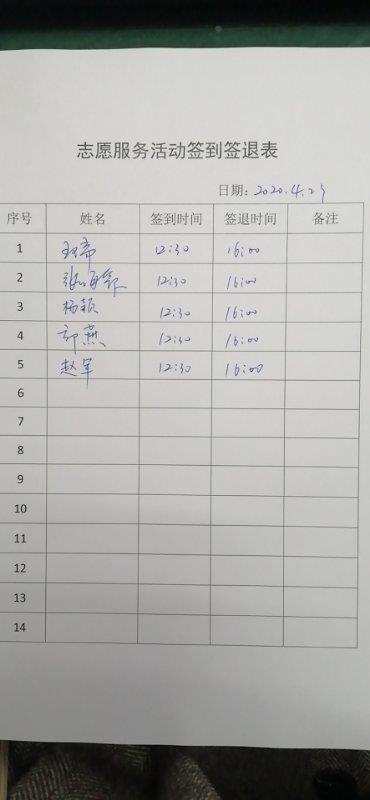 志愿服务活动签到签退表
日期：2020.4.29
序号 姓名 签到时间 签退时间 备注
1 12:30 16:00
2 12:30 16:00
3 杨颖 12:30 16:00
4 郭燕 12:30 16:00
5 赵军 12:30 16:00
6
7
8
9
10
11
12
13
14